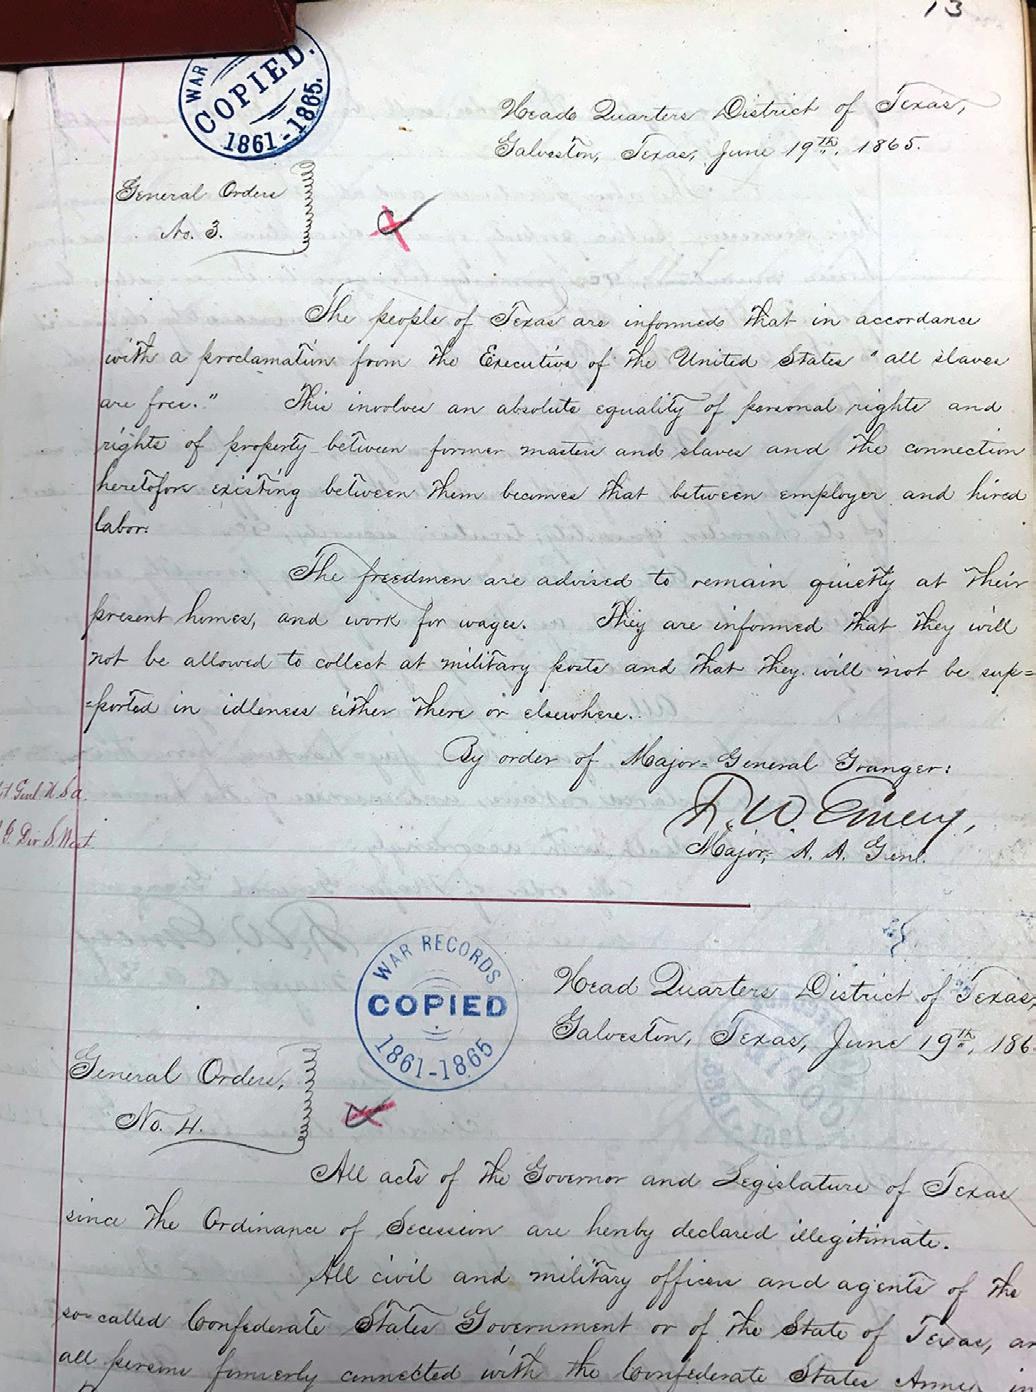 13
WAR
COPIED.
1861-1865.
Head Quarters District of Texas,
Galveston, Texas, June 19th, 1865.
General Orders
No. 3.
The people of Texas are informed that in accordance
with a proclamation from the Executive of the United States "all slaves
are free." This involves an absolute equality of personal rights and
rights of property between former masters and slaves and the connection
heretofore existing between them becomes that between employer and hired
labor.
The freedmen are advised to remain quietly at their
present homes, and work for wages. They are informed that they will
not be allowed to collect at military posts and that they will not be sup=
=ported in idleness either there or elsewhere.
By order of Major-General Granger:
F. W. Emery,
Major, A. A. Genl.
WAR RECORDS
COPIED
1861-1865
Head Quarters District of Texas,
Galveston, Texas, June 19th, 186
General Orders,
No. 4.
All acts of the Governor and Legislature of Texas
since the Ordinance of Secession are hereby declared illegitimate.
All civil and military officers and agents of the
so-called Confederate States Government or of the State of Texas, an
all persons formerly connected with the Confederate States Army, in